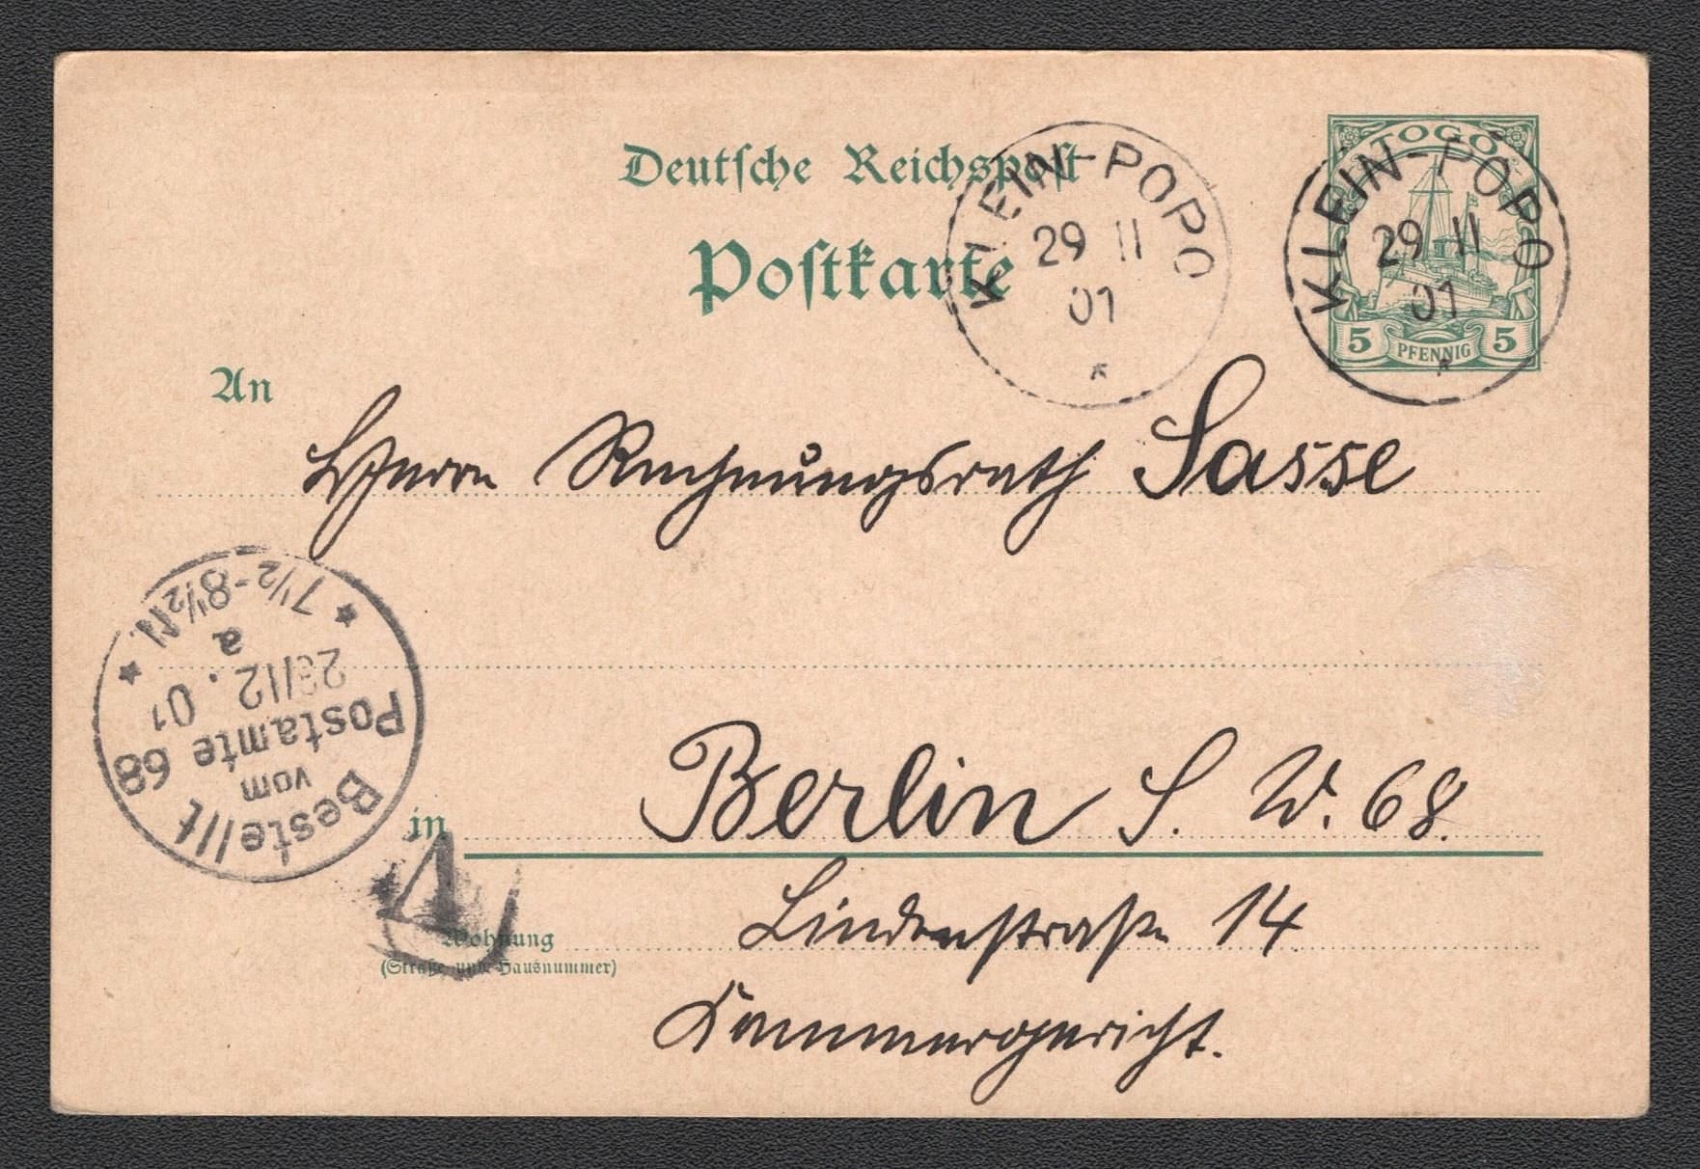 Deutsche Reichspost
Postkarte
KLEIN-POPO
29 11
01
TOGO
5 PFENNIG 5
KLEIN-POPO
29 11
01
An
Herrn Rechnungsrath Sasse
Bestellt
vom
Postamte 68
/12. 01
a
7½-8½N.
in Berlin S. W. 68.
Wohnung
(Straße und Hausnummer)
Lindenstraße 14
Kammergericht.